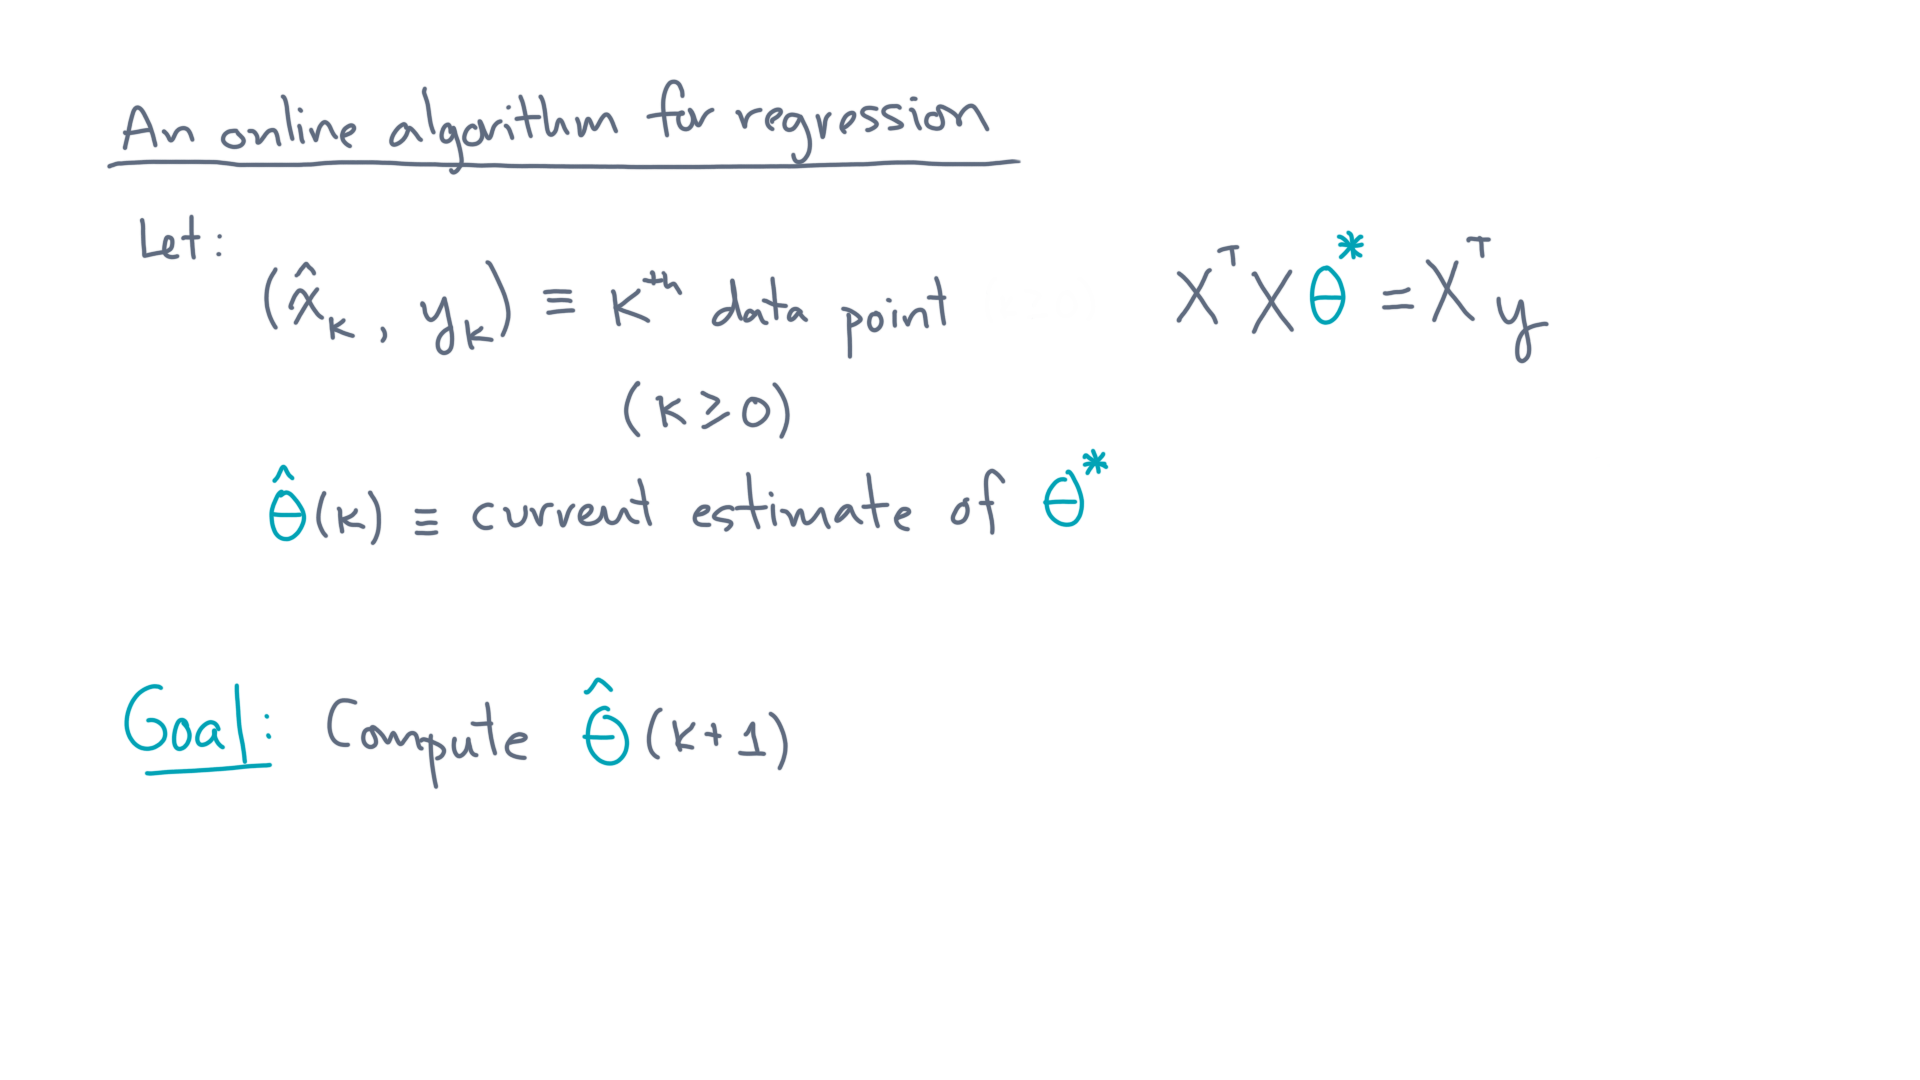 An online algorithm for regression
Let:
(x̂ₖ, yₖ) ≡ kᵗʰ data point
(k ≥ 0)
XᵀXθ* = Xᵀy
θ̂(k) ≡ current estimate of θ*
Goal: Compute θ̂(k+1)